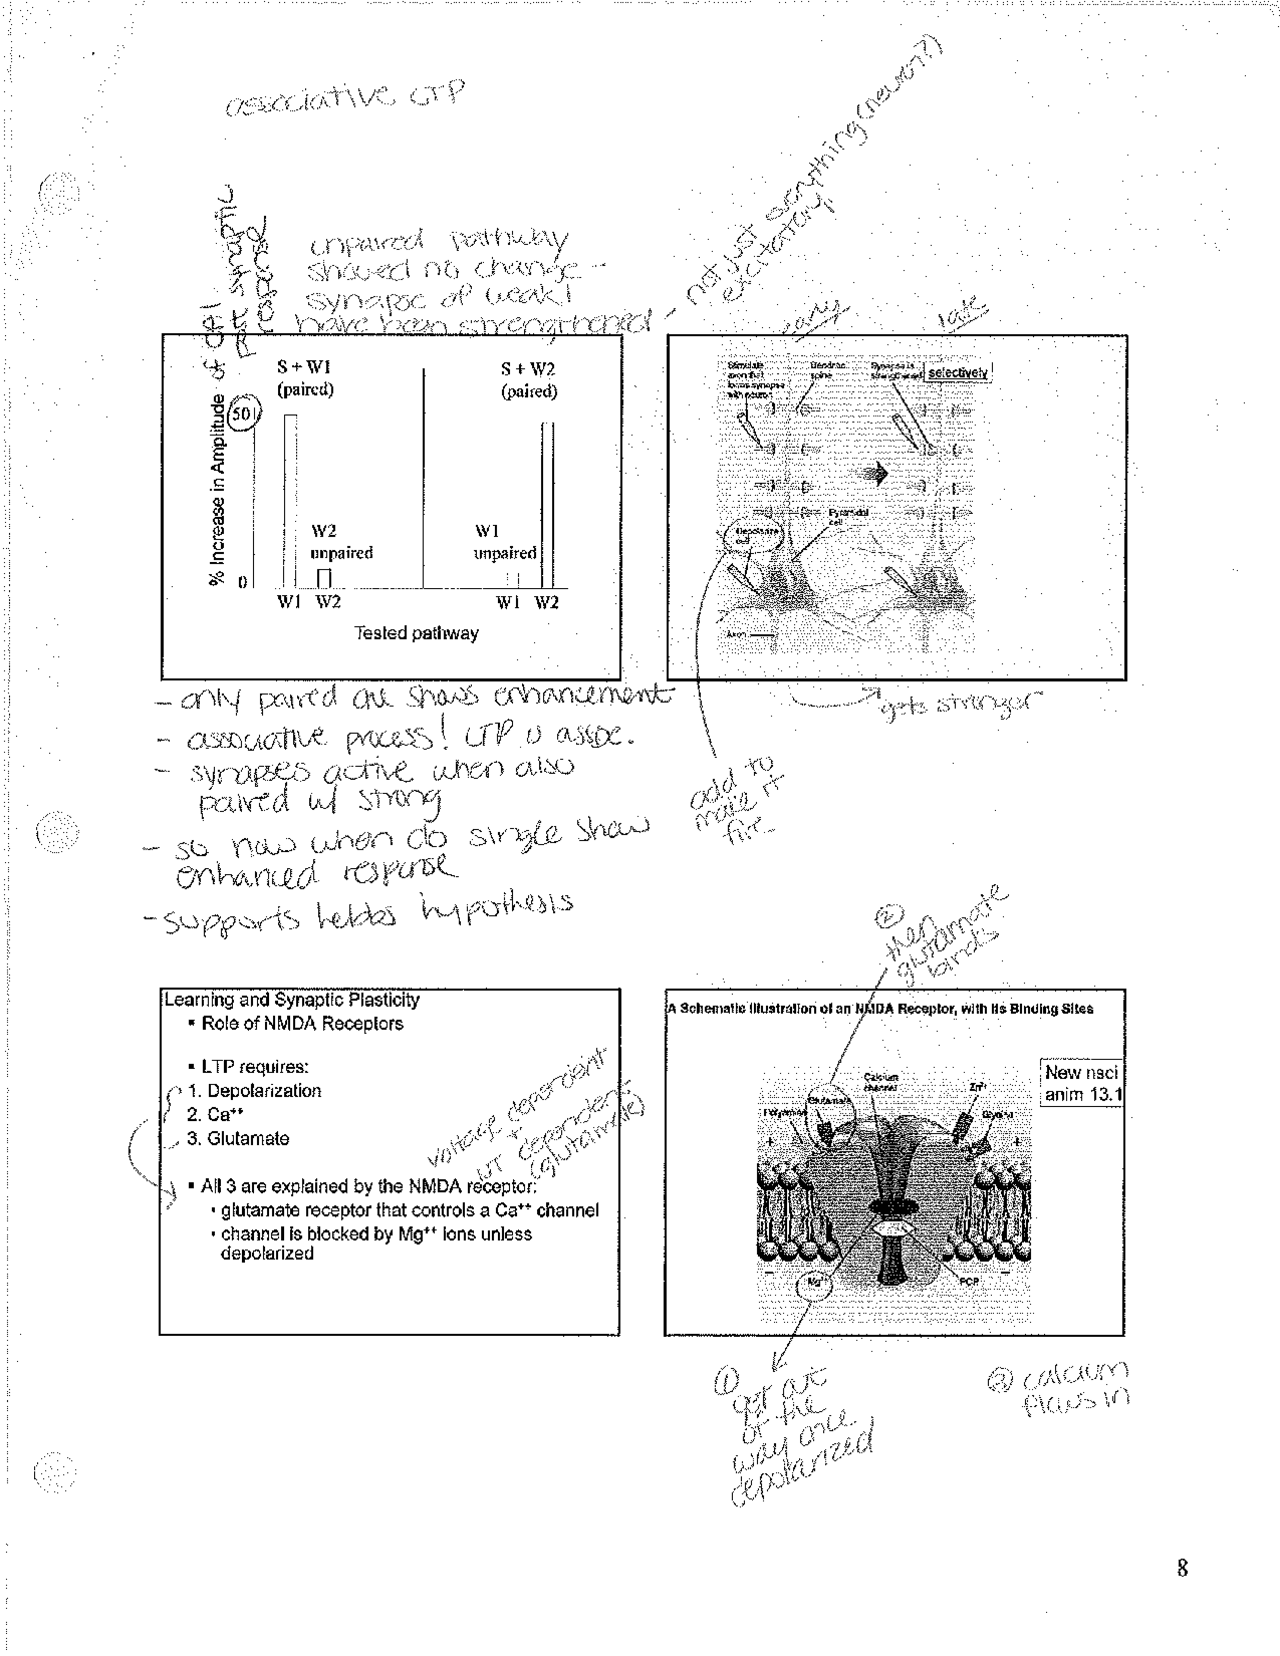 associative LTP
unpaired pathway
showed no change -
synapse of weak 1
have been strengthened
- not just everything (neuron?)
excitatory.
early
late
% Increase in Amplitude of CA1
post synaptic
response
S + W1
(paired)
S + W2
(paired)
50
W2
unpaired
W1
unpaired
0
W1 W2
W1 W2
Tested pathway
Stimulate
axon that
forms synapse
with neuron
Dendritic
spine
Synapse is
strengthened
selectively
Pyramidal
cell
Depolarize
Axon
- only paired one shows enhancement
- associative process! LTP is assoc.
- synapses active when also
paired w/ strong
- so now when do single show
enhanced response
- supports hebbs hypothesis
gets stronger
add to
make it
fire
② then
glutamate
binds
Learning and Synaptic Plasticity
▪ Role of NMDA Receptors
▪ LTP requires:
1. Depolarization
2. Ca++
3. Glutamate
voltage dependent
+
NT dependent
(glutamate)
▪ All 3 are explained by the NMDA receptor:
• glutamate receptor that controls a Ca++ channel
• channel is blocked by Mg++ ions unless
depolarized
A Schematic Illustration of an NMDA Receptor, with its Binding Sites
New nsci
anim 13.1
Calcium
channel
Zn2+
Glutamate
Glycine
Polyamine
+
+
-
-
Mg2+
PCP
① get out
of the
way once
depolarized
③ calcium
flows in
8